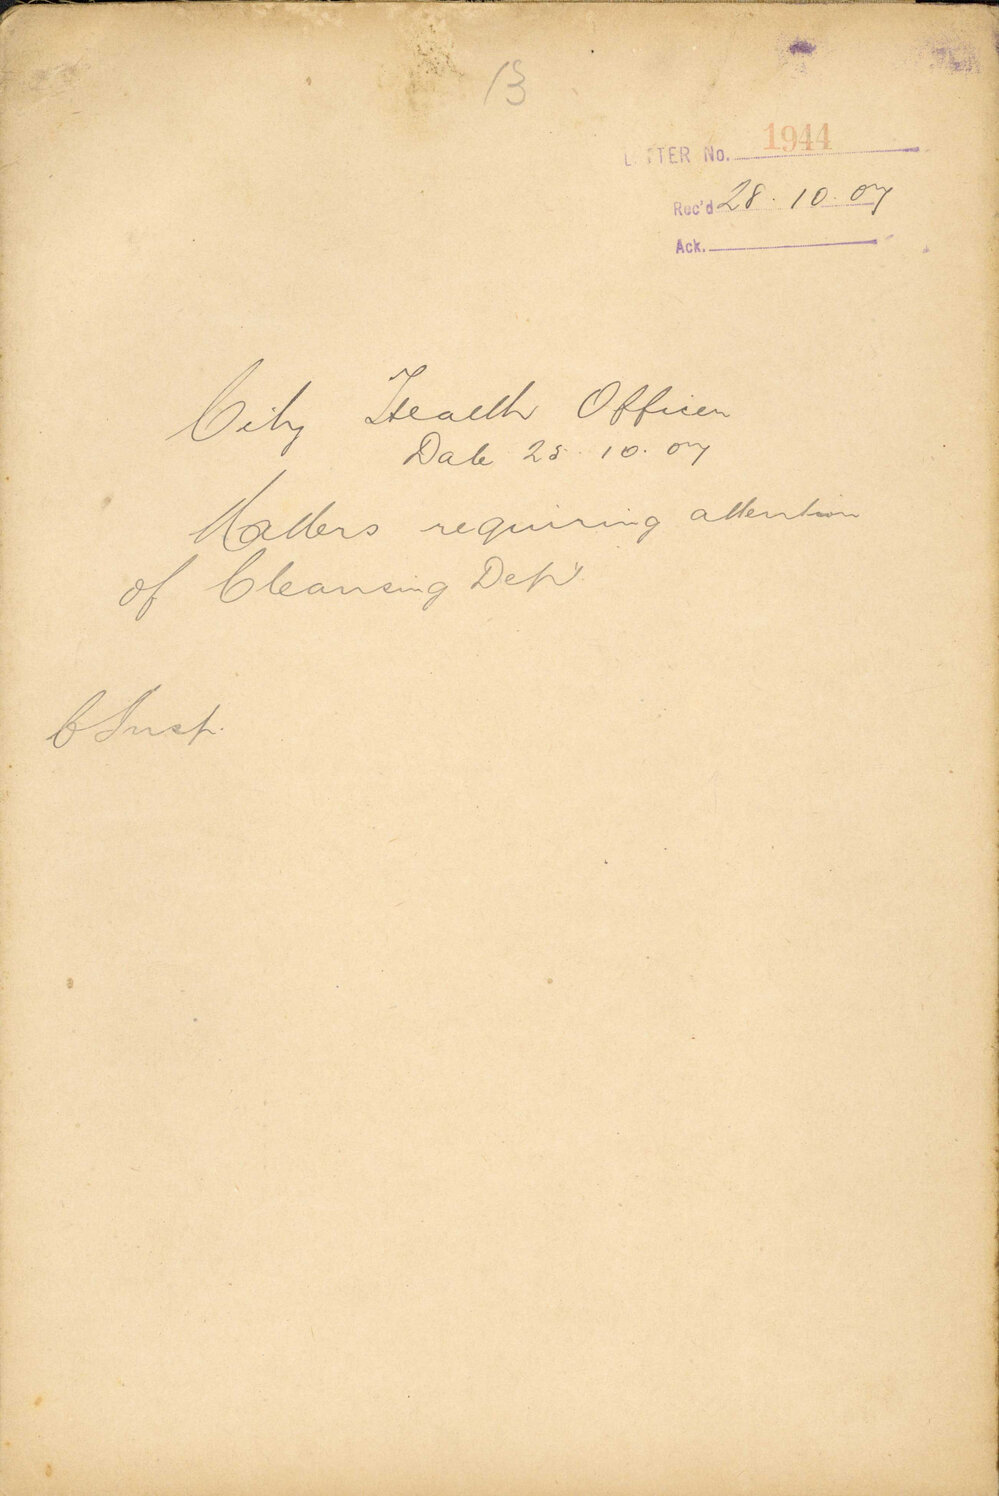 13
LETTER No. 1944
Rec'd 28.10.07
Ack.
City Health Officer
Date 25.10.07
Matters requiring attention
of Cleansing Dept
C Insp.